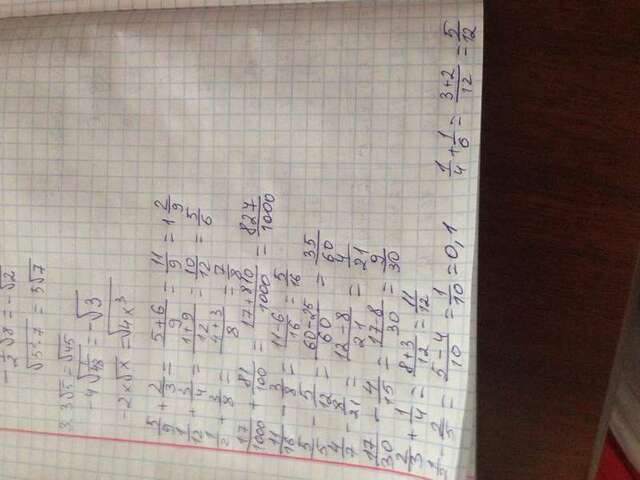 √(5²·7) = 5√7
3. 3√5 = √45
-2x√x = -√(4x³)
5/9 + 2/3 = (5+6)/9 = 11/9 = 1 2/9
1/12 + 3/4 = (1+9)/12 = 10/12 = 5/6
1/2 + 3/8 = (4+3)/8 = 7/8
17/1000 + 81/100 = (17+810)/1000 = 827/1000
11/16 - 3/8 = (11-6)/16 = 5/16
5/5 - 5/12 = (60-25)/60 = 35/60
4/7 - 8/21 = (12-8)/21 = 4/21
17/30 - 4/15 = (17-8)/30 = 9/30
2/3 + 1/4 = (8+3)/12 = 11/12
- 2/5 = (5-4)/10 = 1/10 = 0,1
1/4 + 1/6 = (3+2)/12 = 5/12